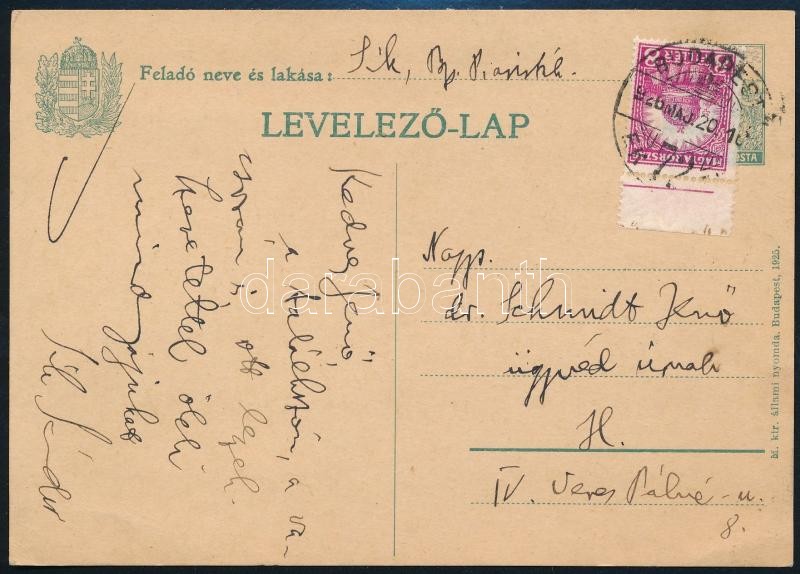 Feladó neve és lakása: Sík, Bp. Piarista
LEVELEZŐ-LAP
BUDAPEST
926 MAJ. 20
MAGYARORSZÁG
POSTA
Kedves Jenő
a találkozón, a va-
csorán is ott leszek.
Szeretettel öleli
mindnyájukat
Sík Sándor
Nags.
dr. Schmidt Jenő
ügyvéd úrnak
H.
IV. Veres Pálné-u.
8.
M. kir. állami nyomda. Budapest, 1925.
darabanth